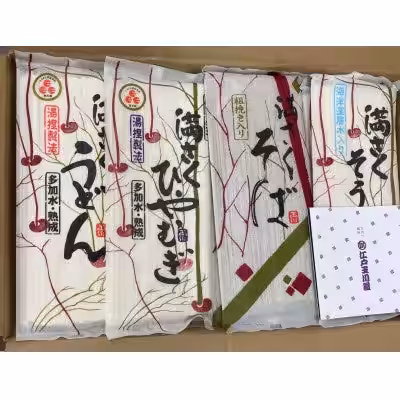 湯捏製法
満さく
うどん
多加水・熟成
湯捏製法
満さく
ひやむぎ
多加水・熟成
粗挽き入り
満さく
そば
海洋深層水入り
満さく
そう
江戸玉川屋